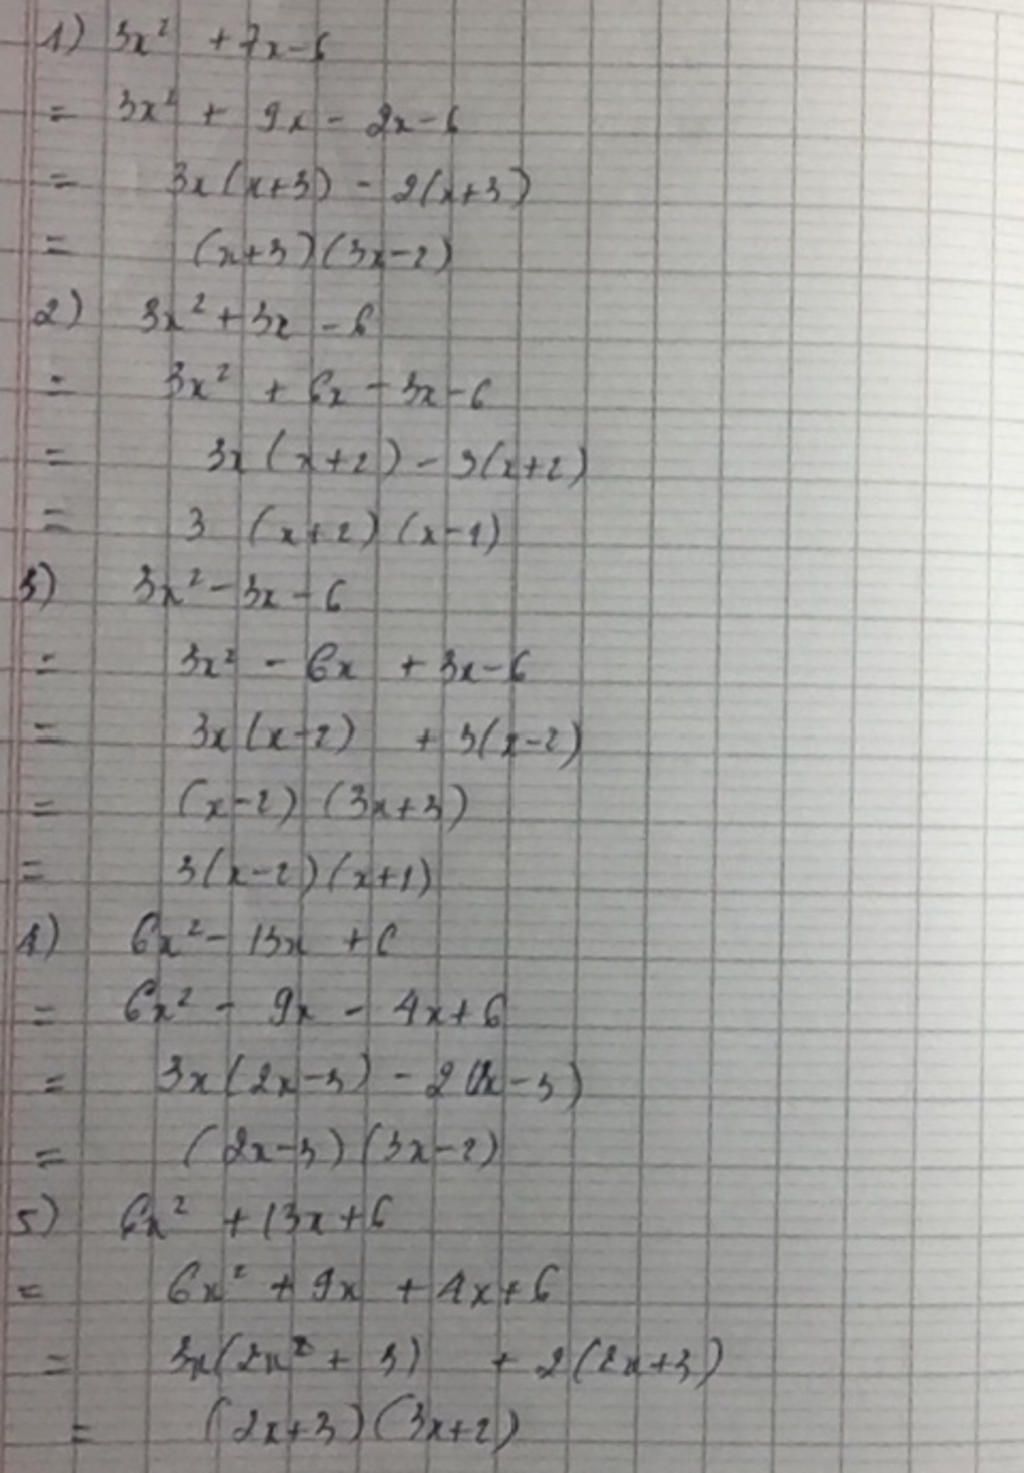 1) 3x² + 7x - 6
= 3x² + 9x - 2x - 6
= 3x(x+3) - 2(x+3)
= (x+3)(3x-2)
2) 3x² + 3x - 6
= 3x² + 6x - 3x - 6
= 3x(x+2) - 3(x+2)
= 3 (x+2)(x-1)
3) 3x² - 3x - 6
= 3x² - 6x + 3x - 6
= 3x(x-2) + 3(x-2)
= (x-2)(3x+3)
= 3(x-2)(x+1)
4) 6x² - 13x + 6
= 6x² - 9x - 4x + 6
= 3x(2x-3) - 2(2x-3)
= (2x-3)(3x-2)
5) 6x² + 13x + 6
= 6x² + 9x + 4x + 6
= 3x(2x² + 3) + 2(2x+3)
= (2x+3)(3x+2)